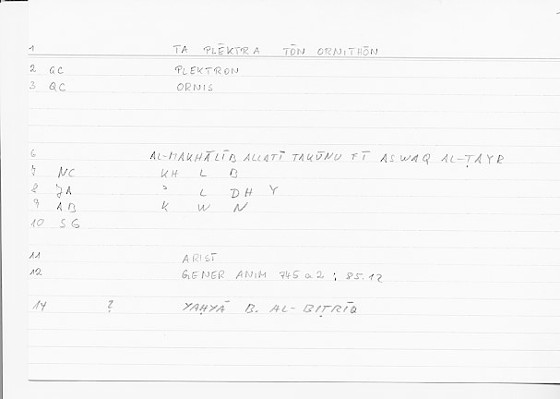 1 TA PLĒKTRA TŌN ORNITHŌN
2 GC PLEKTRON
3 QC ORNIS
6 AL-MAKHĀLĪB ALLATĪ TAKŪNU FĪ ASWAQ AL-ṬAYR
7 NC KH L B
8 JA ʾ L DH Y
9 AB K W N
10 SG
11 ARIST
12 GENER ANIM 745 a 2 ; 85.12
14 ? YAḤYĀ B. AL-BIṬRĪQ